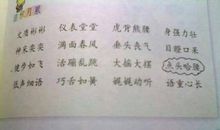 文质彬彬 仪表堂堂 虎背熊腰 身强力壮
神采奕奕 满面春风 垂头丧气 目瞪口呆
健步如飞 活蹦乱跳 大摇大摆 点头哈腰
低声细语 巧舌如簧 娓娓动听 语重心长